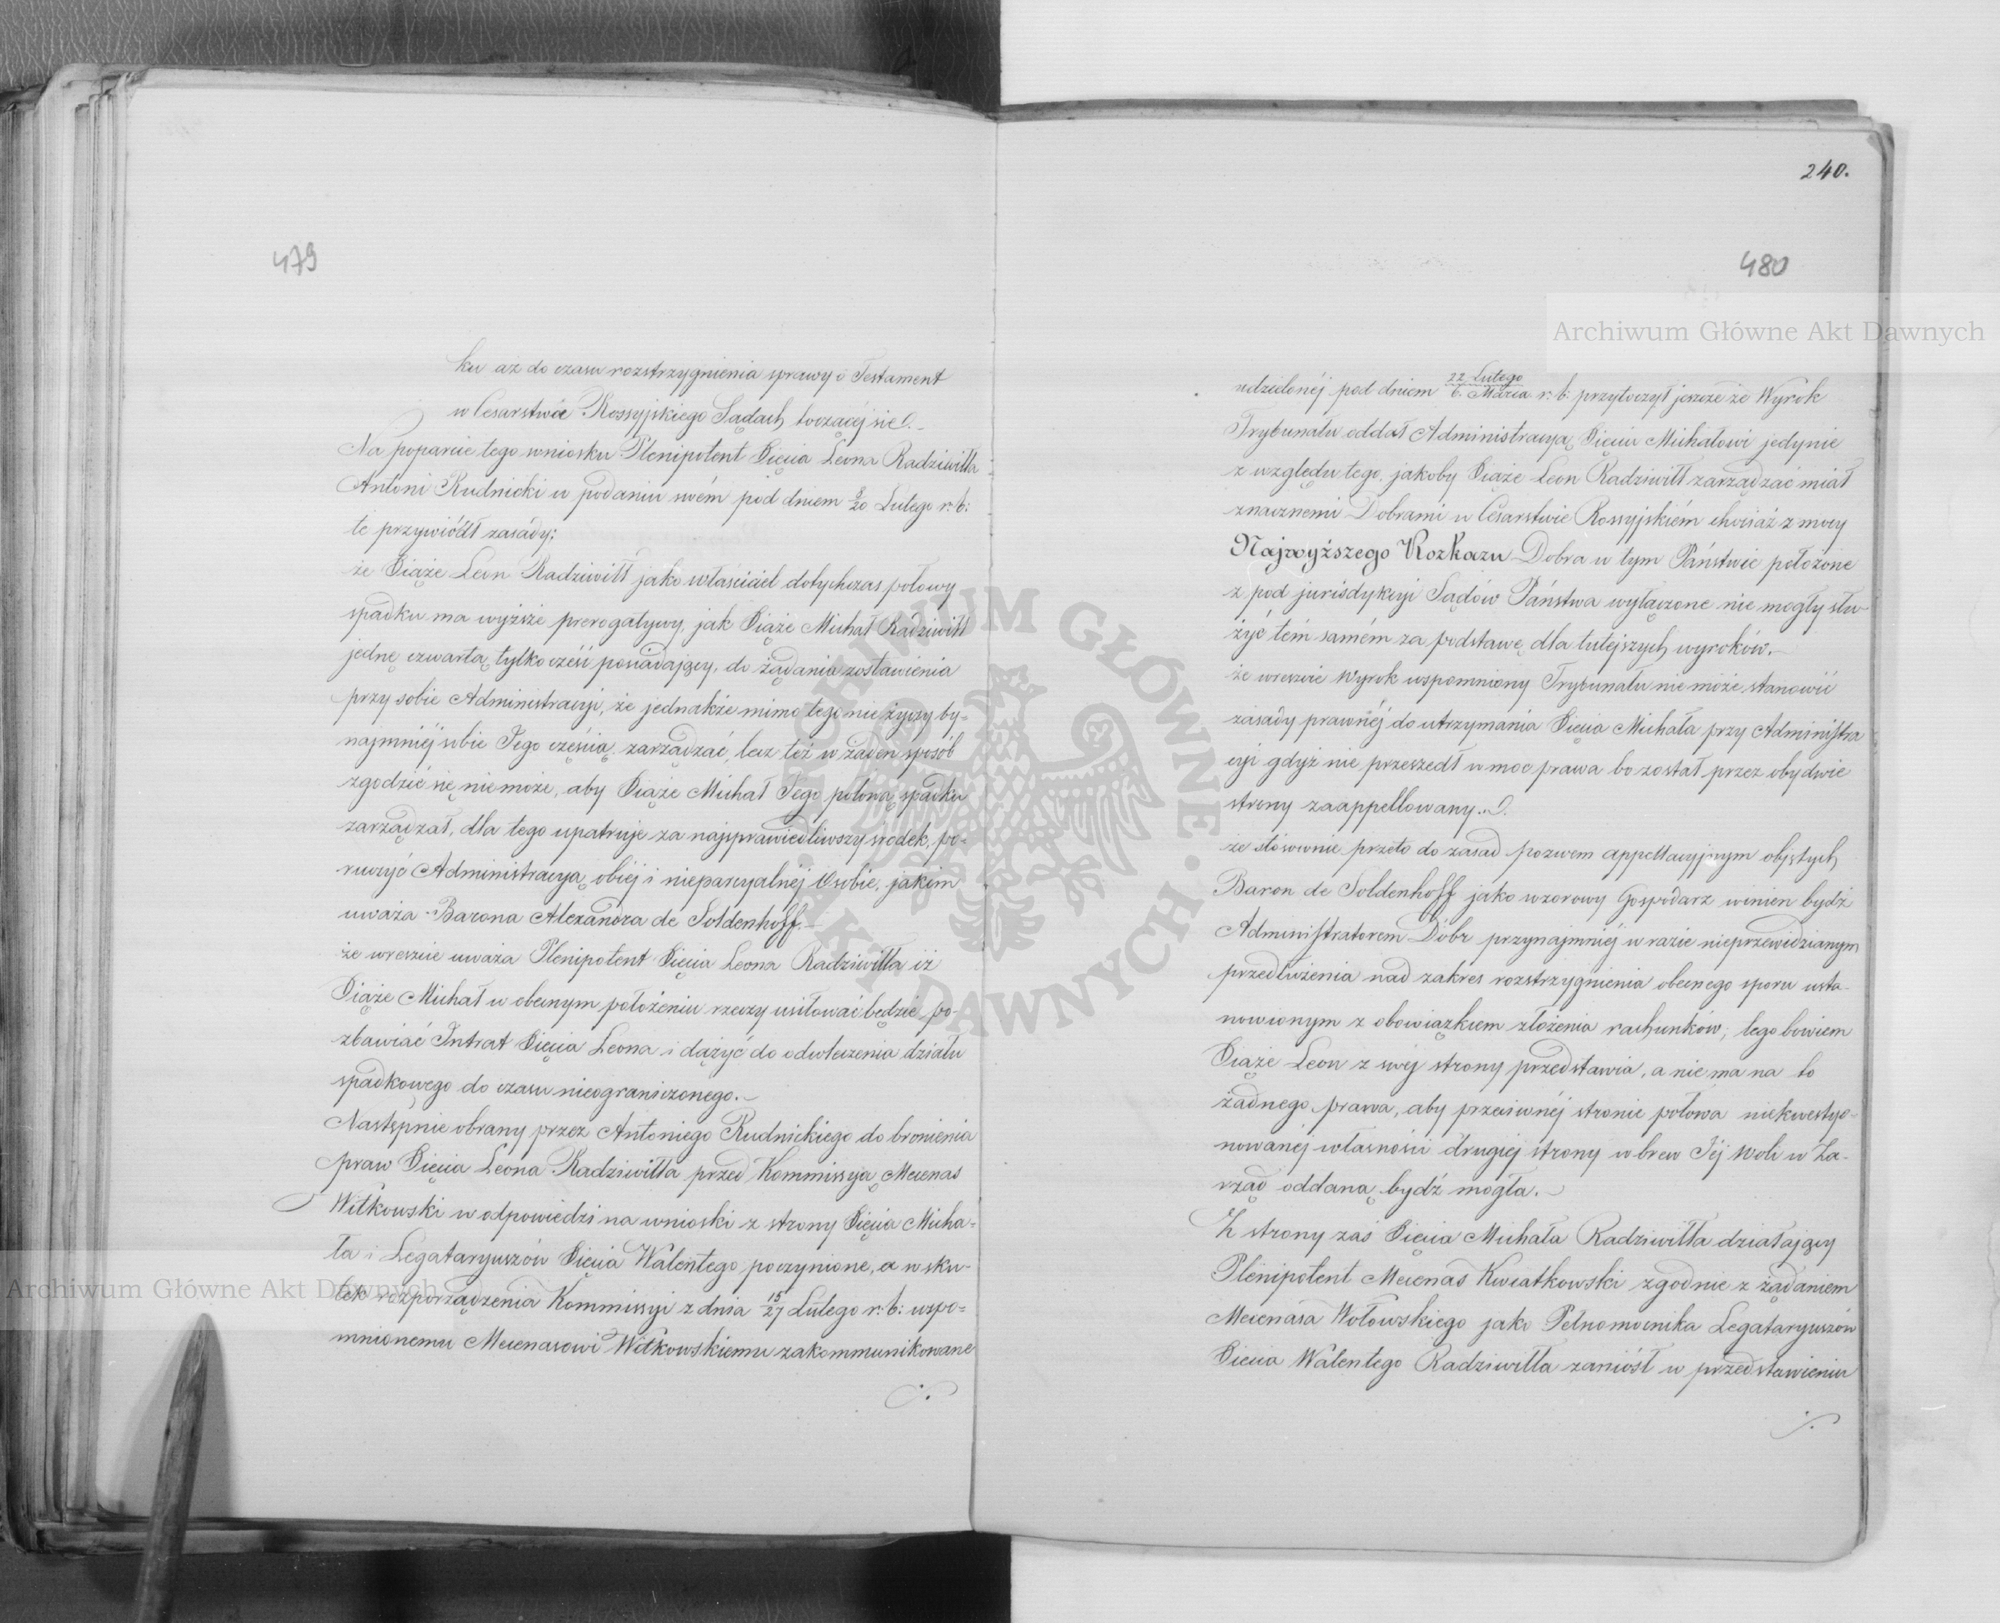 479
ku aż do czasu rozstrzygnienia sprawy o Testament
w Cesarstwie Rossyjskiego Sądach toczącej się.
Na poparcie tego wniosku Plenipotent Xięcia Leona Radziwiłła
Antoni Rudnicki w podaniu swém pod dniem 8/20 Lutego r: b:
te przywiódł zasady:
że Xiąże Leon Radziwiłł jako właściciel dotychczas połowy
spadku ma wyższe prerogatywy, jak Xiąże Michał Radziwiłł
jednę czwartą tylko część posiadający, do żądania zostawienia
przy sobie Administracyi, że jednakże mimo tego nie życzy by-
najmniéj sobie Jego częścią zarządzać, lecz też w żaden sposób
zgodzić się nie może, aby Xiąże Michał Jego połową spadku
zarządzał, dla tego upatruje za najsprawiedliwszy środek, po-
ruczyć Administracyą obcéj i nieparcyalnéj Osobie, jakim
uważa Barona Alexandra de Soldenhoff.
że wreszcie uważa Plenipotent Xięcia Leona Radziwiłła iż
Xiąże Michał w obecnym położeniu rzeczy usiłować będzie po-
zbawiać Intrat Xięcia Leona i dążyć do odwleczenia działu
spadkowego do czasu nieograniczonego.
Następnie obrany przez Antoniego Rudnickiego do bronienia
praw Xięcia Leona Radziwiłła przed Kommissyją Mecenas
Witkowski w odpowiedzi na wnioski z strony Xięcia Micha-
ła i Legataryuszów Xięcia Walentego poczynione, a w sku-
tek rozporządzenia Kommissyi z dnia 15/27 Lutego r: b: wspo-
mnionemu Mecenasowi Witkowskiemu zakommunikowane
240.
480
udzielonéj pod dniem 22 Lutego/6. Marca r: b: przytoczył jeszcze że Wyrok
Trybunału oddał Administracyą Xięciu Michałowi jedynie
z względu tego, jakoby Xiąże Leon Radziwiłł zarządzać miał
znacznemi Dobrami w Cesarstwie Rossyjskiém chociaż z mocy
Najwyższego Rozkazu Dobra w tym Państwie położone
z pod jurisdykcyi Sądów Państwa wyłączone nie mogły słu-
żyć tém samém za podstawę dla tutejszych wyroków.
że wreszcie Wyrok wspomniony Trybunału nie może stanowić
zasady prawnéj do utrzymania Xięcia Michała przy Administra
cyi gdyż nie przeszedł w moc prawa bo został przez obydwie
strony zaappellowany.
że stósownie przeto do zasad pozwem appellacyjnym objętych
Baron de Soldenhoff jako wzorowy Gospodarz winien bydź
Administratorem Dóbr przynajmniéj w razie nieprzewidzianym
przedłużenia nad zakres rozstrzygnienia obecnego sporu usta-
nowionym z obowiązkiem złożenia rachunków, tego bowiem
Xiąże Leon z swéj strony przedstawia, a nie ma na to
żadnego prawa, aby przeciwnéj stronie połowa niekwestyo-
nowanéj własności drugiéj strony wbrew Jéj woli w Za-
rząd oddaną bydź mogła.
Z strony zaś Xięcia Michała Radziwiłła działający
Plenipotent Mecenas Kwiatkowski zgodnie z żądaniem
Mecenasa Wołowskiego jako Pełnomocnika Legataryuszów
Xięcia Walentego Radziwiłła zaniósł w przedstawieniu
Archiwum Główne Akt Dawnych
Archiwum Główne Akt Dawnych
ARCHIWUM GŁÓWNE AKT DAWNYCH